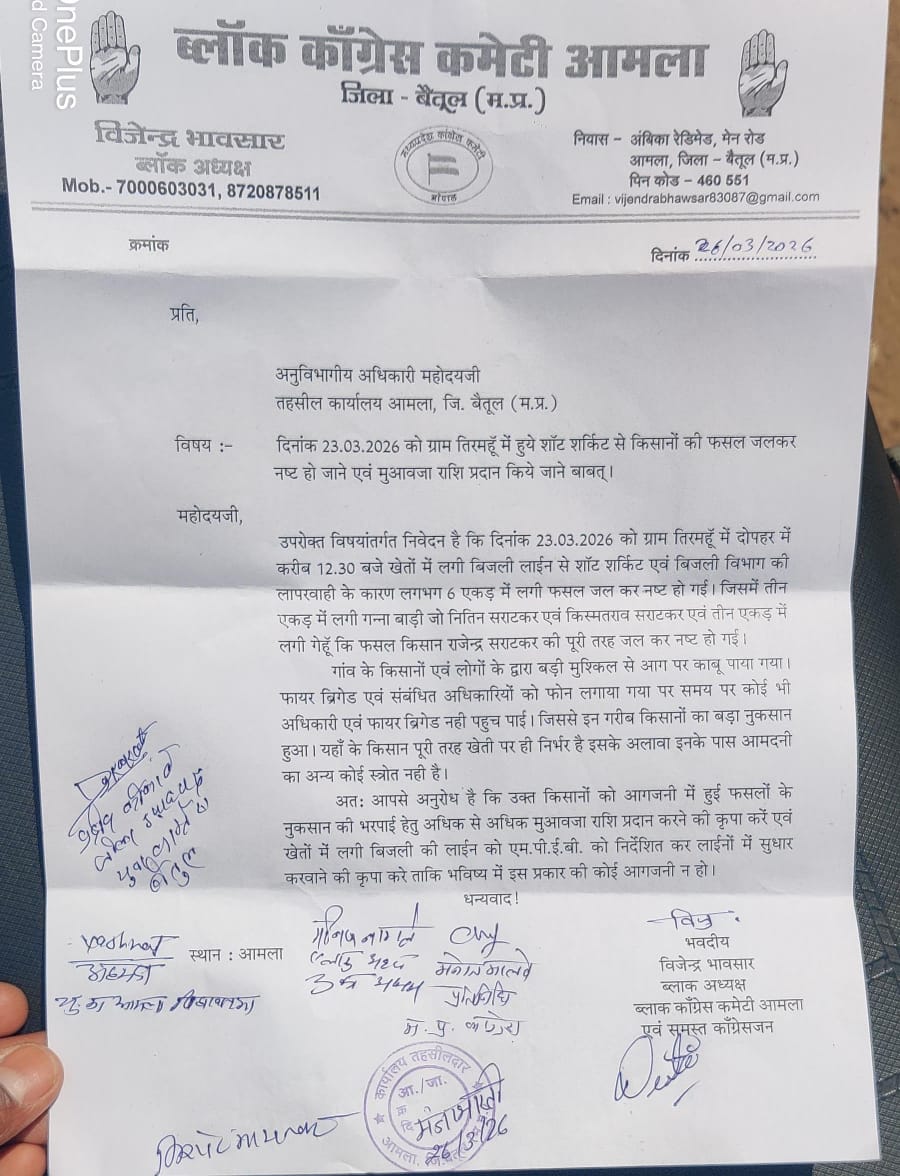 OnePlus
d Camera
ब्लॉक काँग्रेस कमेटी आमला
जिला - बैतूल (म.प्र.)
विजेन्द्र भावसार
ब्लॉक अध्यक्ष
Mob.- 7000603031, 8720878511
मध्यप्रदेश कांग्रेस कमेटी
भोपाल
निवास – अंबिका रेडिमेड, मेन रोड
आमला, जिला – बैतूल (म.प्र.)
पिन कोड – 460 551
Email : vijendrabhawsar83087@gmail.com
क्रमांक
दिनांक 26/03/2026
प्रति,
अनुविभागीय अधिकारी महोदयजी
तहसील कार्यालय आमला, जि. बैतूल (म.प्र.)
विषय :- दिनांक 23.03.2026 को ग्राम तिरमहूँ में हुये शॉट शर्किट से किसानों की फसल जलकर
नष्ट हो जाने एवं मुआवजा राशि प्रदान किये जाने बाबत्।
महोदयजी,
उपरोक्त विषयांतर्गत निवेदन है कि दिनांक 23.03.2026 को ग्राम तिरमहूँ में दोपहर में
करीब 12.30 बजे खेतों में लगी बिजली लाईन से शॉट शर्किट एवं बिजली विभाग की
लापरवाही के कारण लगभग 6 एकड़ में लगी फसल जल कर नष्ट हो गई। जिसमें तीन
एकड़ में लगी गन्ना बाड़ी जो नितिन सराटकर एवं किस्मतराव सराटकर एवं तीन एकड़ में
लगी गेहूँ कि फसल किसान राजेन्द्र सराटकर की पूरी तरह जल कर नष्ट हो गई।
गांव के किसानों एवं लोगों के द्वारा बड़ी मुश्किल से आग पर काबू पाया गया।
फायर ब्रिगेड एवं संबंधित अधिकारियों को फोन लगाया गया पर समय पर कोई भी
अधिकारी एवं फायर ब्रिगेड नही पहुच पाई। जिससे इन गरीब किसानों का बड़ा नुकसान
हुआ। यहाँ के किसान पूरी तरह खेती पर ही निर्भर है इसके अलावा इनके पास आमदनी
का अन्य कोई स्त्रोत नही है।
अतः आपसे अनुरोध है कि उक्त किसानों को आगजनी में हुई फसलों के
नुकसान की भरपाई हेतु अधिक से अधिक मुआवजा राशि प्रदान करने की कृपा करें एवं
खेतों में लगी बिजली की लाईन को एम.पी.ई.बी. को निर्देशित कर लाईनों में सुधार
करवाने की कृपा करे ताकि भविष्य में इस प्रकार की कोई आगजनी न हो।
धन्यवाद!
स्थान : आमला
भवदीय
विजेन्द्र भावसार
ब्लाक अध्यक्ष
ब्लाक काँग्रेस कमेटी आमला
एवं समस्त काँग्रेसजन
मनोज मालवे
प्रतिनिधि
कार्यालय तहसीलदार
आ./जा.
26/3/26